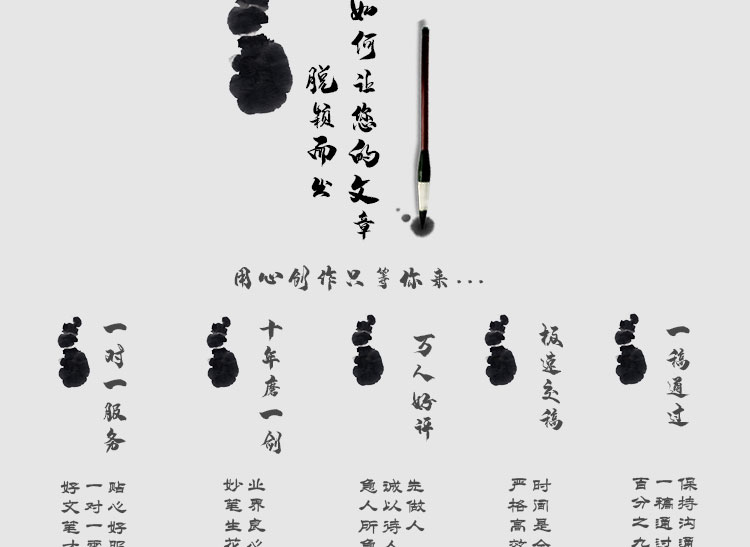 如何让您的文章
脱颖而出
用心创作只等你来...
一对一服务
十年磨一剑
万人好评
极速交稿
一稿通过
贴心好服
一对一
好文笔
业界良心
妙笔生花
先做人
诚以待人
急人所急
时间是金
严格高效
保持沟通
一稿通过
百分之九